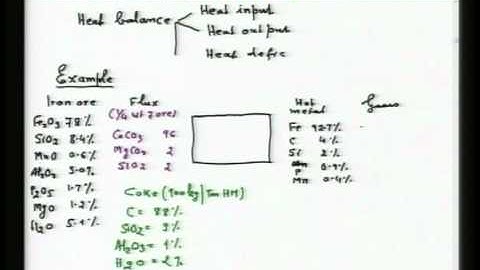 Heat balance
Heat input
Heat output
Heat defic
Example
Iron ore
Fe2O3 78%
SiO2 8.4%
MnO 0.6%
Al2O3 5.0%
P2O5 1.7%
MgO 1.2%
H2O
Flux
(1/4 wt of ore)
CaCO3 96
MgCO3 2
SiO2 2
Coke (900kg/Ton HM)
C = 88%
SiO2 = 9%
Al2O3 = 1%
H2O = 2%
Hot metal
Fe 92.7%
C 4%
Si 2%
P 0.9%
Mn 0.4%